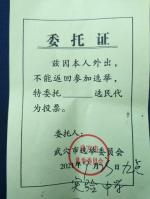 委托证
兹因本人外出，
不能返回参加选举，
特委托 选民代
为投票。
委托人：
武穴市选举委员会
2021年
实验中学